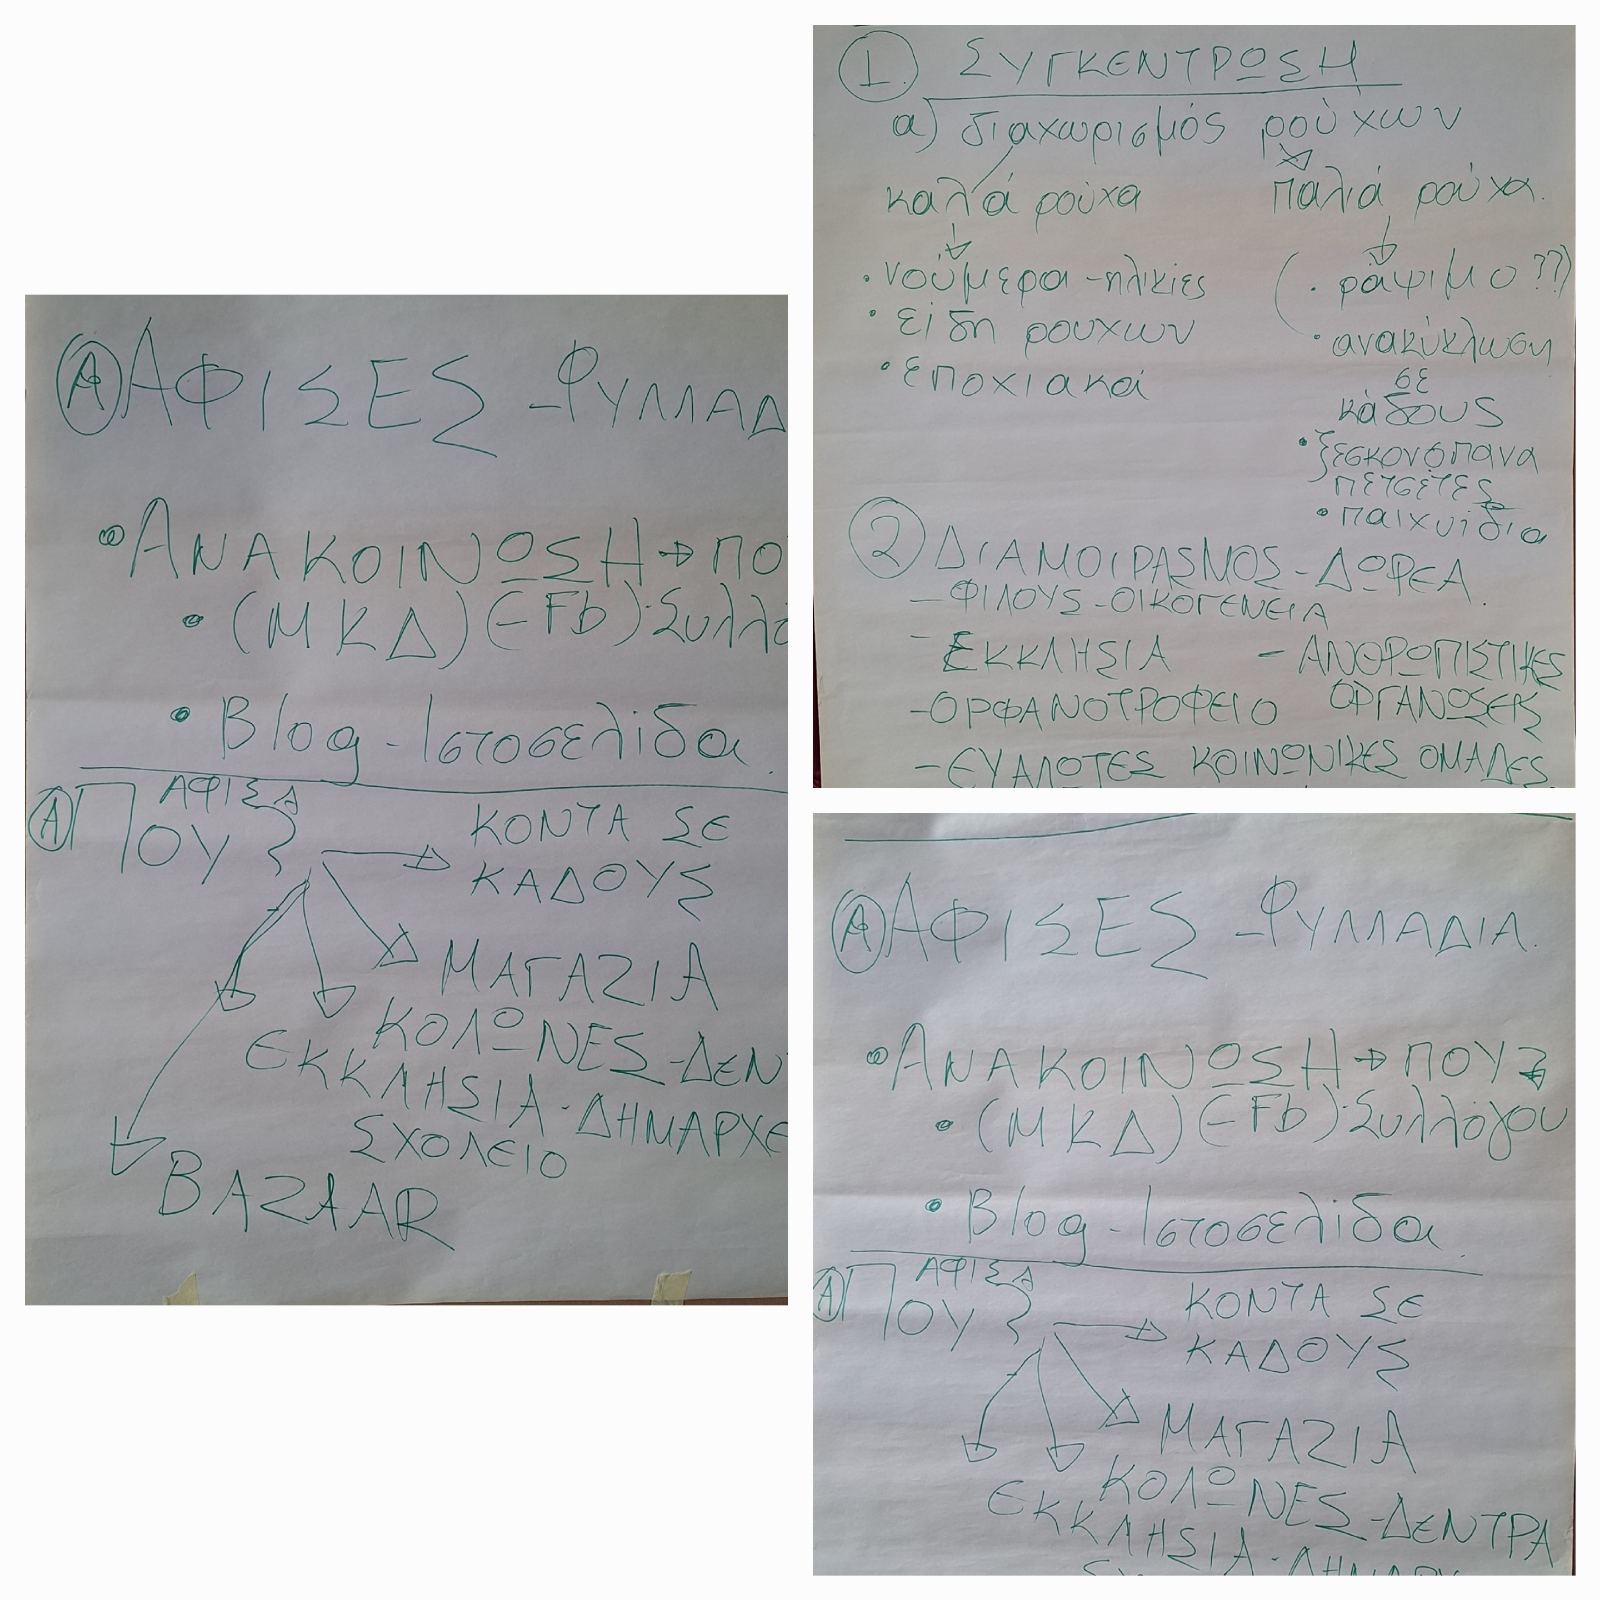 Ⓐ ΑΦΙΣΕΣ - ΦΥΛΛΑΔ
• ΑΝΑΚΟΙΝΩΣΗ → ΠΟ
• (ΜΚΔ) (-Fb) · Συλλό
• Blog - Ιστοσελίδα.
ΑΦΙΣΑ
Ⓐ ΠΟΥ }
ΚΟΝΤΑ ΣΕ
ΚΑΔΟΥΣ
ΜΑΓΑΖΙΑ
ΚΟΛΩΝΕΣ - ΔΕΝΤ
ΕΚΚΛΗΣΙΑ · ΔΗΜΑΡΧΕ
ΣΧΟΛΕΙΟ
BAZAAR
① ΣΥΓΚΕΝΤΡΩΣΗ
α) διαχωρισμός ρούχων
καλά ρούχα παλιά ρούχα.
· νούμερα - ηλικίες (· ράψιμο ??)
· είδη ρουχων · ανακύκλωση
· εποχιακά σε
κάδους
· ξεσκονόπανα
πετσέτες
· παιχνίδια
② ΔΙΑΜΟΙΡΑΣΜΟΣ - ΔΩΡΕΑ.
- ΦΙΛΟΥΣ - ΟΙΚΟΓΕΝΕΙΑ
- ΕΚΚΛΗΣΙΑ - ΑΝΘΡΩΠΙΣΤΙΚΕΣ
- ΟΡΦΑΝΟΤΡΟΦΕΙΟ ΟΡΓΑΝΩΣΕΙΣ
- ΕΥΑΛΟΤΕΣ ΚΟΙΝΩΝΙΚΕΣ ΟΜΑΔΕΣ
Ⓐ ΑΦΙΣΕΣ - ΦΥΛΛΑΔΙΑ.
• ΑΝΑΚΟΙΝΩΣΗ → ΠΟΥ
• (ΜΚΔ) (-Fb) · Συλλόγου
• Blog - Ιστοσελίδα.
ΑΦΙΣΑ
Ⓐ ΠΟΥ }
ΚΟΝΤΑ ΣΕ
ΚΑΔΟΥΣ
ΜΑΓΑΖΙΑ
ΚΟΛΩΝΕΣ - ΔΕΝΤΡΑ
ΕΚΚΛΗΣΙΑ · ΔΗΜΑΡΧ